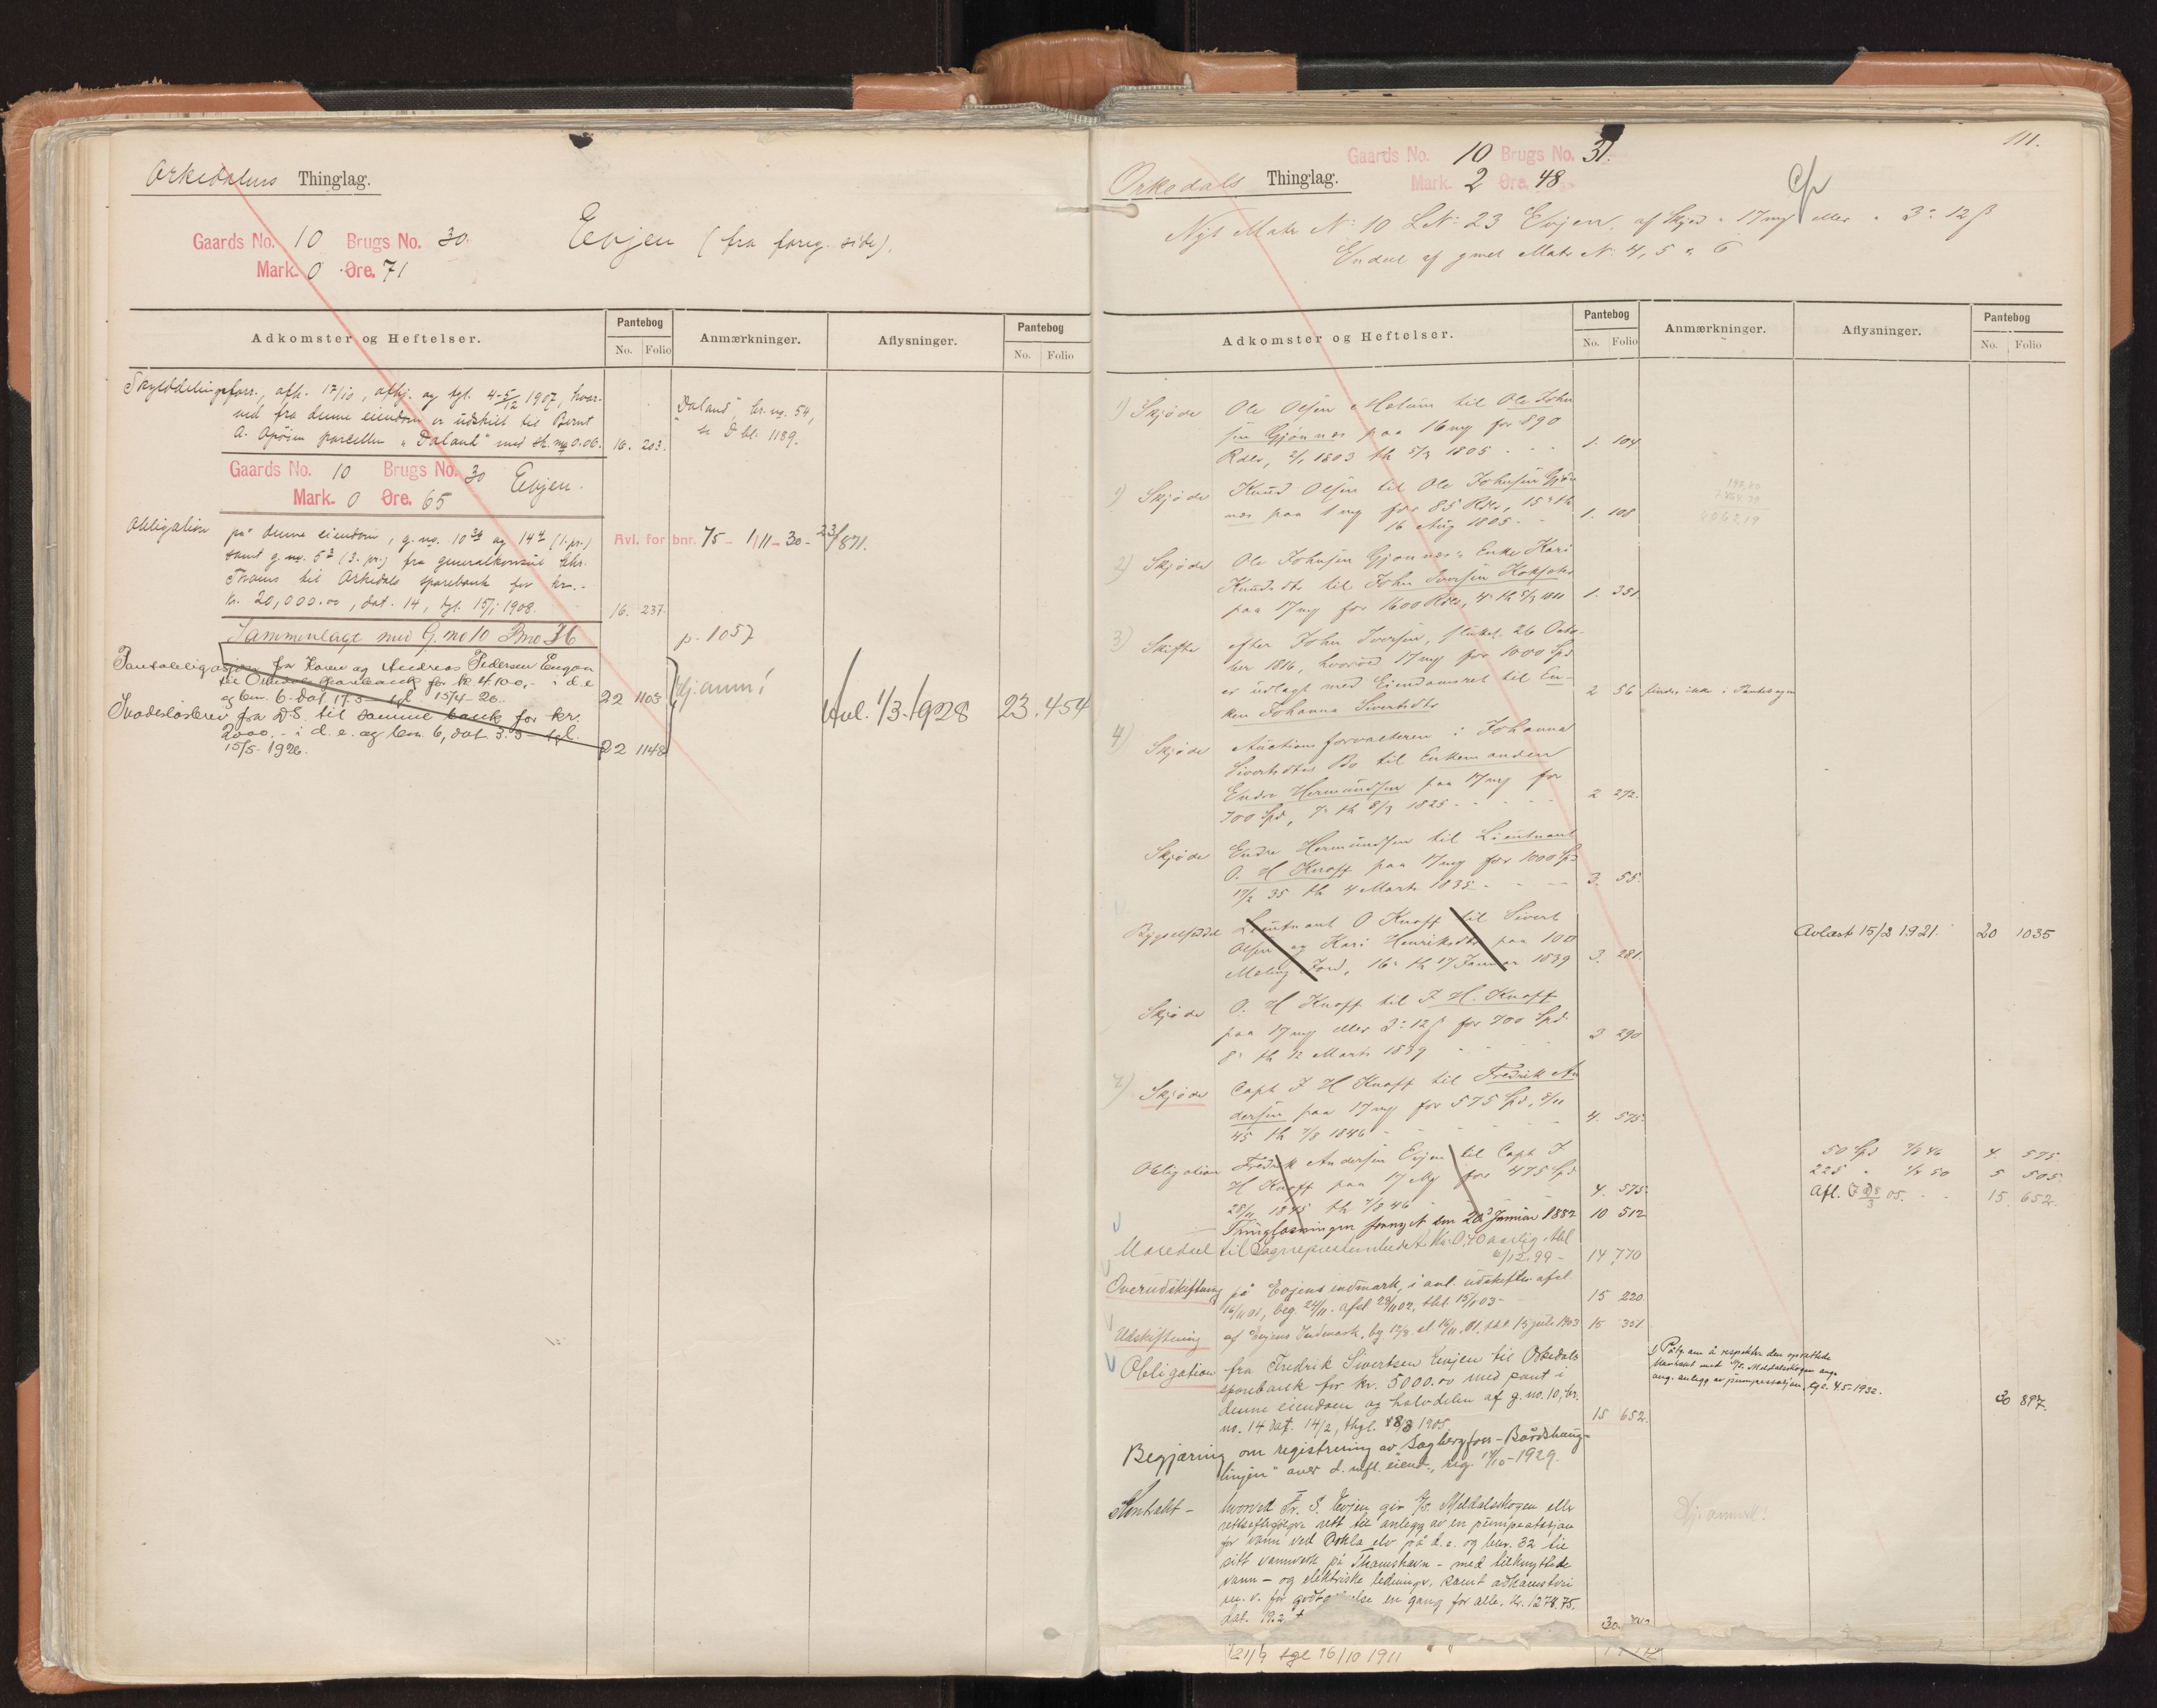 Orkedalens Thinglag.
Gaards No. 10 Brugs No. 30.
Mark. 0 Øre. 71
Evjen (fra foreg. side).
Adkomster og Heftelser.
Pantebog
No. Folio
Anmærkninger.
Aflysninger.
Pantebog
No. Folio
Skylddelingsforr., afh. 17/10, afhj. og tgl. 4-5/12 1907, hvor-
ved fra denne eiendom er udskilt til Bernt
A. Opöien parcellen "Daland" med sk. m 0.06. 16. 203.
"Daland", br. no. 54,
se Dbl. 1189.
Gaards No. 10 Brugs No. 30 Evjen.
Mark. 0 Øre. 65
Obligation på denne eiendom, g. no. 10 34 og 14 4 (1. pr.)
samt g. no. 5 3 (3. pr.) fra generalkonsul Chr.
Thams til Orkedals sparebank for kr.
kr. 20,000.00, dat. 14, tgl. 15/1 1908. 16. 237.
Avl. for bnr. 75 - 1/11-30 - 23/871.
Sammenlagt med G.no 10 Bno 36
p. 1057
Pantobligasjon fra Karen og Andreas Pedersen Engan
til Orkedals sparebank for kr. 4100,- i d.e
og bnr. 6. dat. 17.3 - tgl 15/4-26. 22 1103
Skadeslösbrev fra D.S. til samme bank for kr.
2000.- i d.e. og bnr. 6, dat. 3.5 - tgl.
15/5-1926. 22 1148
Dj. anm!
Avl. 1/3-1928 23.454
111.
Gaards No. 10 Brugs No. 31.
Mark. 2 Øre. 48
Orkedals Thinglag.
Nyt Matr N: 10 LN: 23 Evjen, af Skyld " 17 mg eller " 3" 12 ß
Endeel af gmel Matr N. 4, 5 " 6
Adkomster og Heftelser.
Pantebog
No. Folio
Anmærkninger.
Aflysninger.
Pantebog
No. Folio
1) Skjøde Ole Olsen Melum til Ole John
sen Gjønnes paa 16 mg for 890
Rdlr, 2/1 1803 th 5/3 1805 1. 104
1) Skjøde Knud Olsen til Ole Johnsen Gjøn
nes paa 1 mg for 85 Rdlr, 15" th
16 Aug 1805 1. 108
2) Skjøde Ole Johnsen Gjønnes's Enke Kari
Knudsdtr til John Iversen
paa 17 mg for 1600 Rdlr, 4" th 1. 351
3) Skifte efter John Iversen, sluttet 26 Octo-
ber 1816, hvorved 17 mg for 1000 Spd
er udlagt med Eiendomsret til En-
ken Johanna Sivertsdtr 2 56 findes ikke i Pantebogen
4) Skjøde Auctionsforvalteren i Johanna
Sivertsdtrs Bo til Enkemanden
Endre Hermundsen paa 17 mg for
700 Spd, 7" th 8/3 1825 2 272.
Skjøde Endre Hermundsen til Lieutnant
O. H Knoff paa 17 mg for 1000 Spd
17/2 35 th 4 Marts 1835 3. 55.
Bygselseddel Lieutnant O Knoff til Sivert
Olsen og Kari Henriksdtr paa 100
Meling Jord, 16" th 17 Januar 1839 3. 281.
Avlæst 15/2 1921. 20 1035
Skjøde O. H Knoff til J H. Knoff
paa 17 mg eller 3" 12 ß for 700 Spd
8" th 12 Marts 1839 3 290
7) Skjøde Capt J H Knoff til Fredrik An
dersen paa 17 mg for 575 Spd, 8/11
45 th 7/8 1846 4. 575.
Obligation Fredrik Andersen Evjen til Capt J
H Knoff paa 17 Mg for 475 Spd
28/11 1845 th 7/8 46 4. 575.
50 Spd 7/8 46 4. 575
225 " 50 5 505.
Afl. 05. 15 652.
Thinglæsningen fornyet den 20d Januar 1882 10 512
Maledeel til Sogneprestembedet Kr. 0,40 aarlig, thl
6/12.99 - 14 770
Overudskiftning på Evjens indmark, i anl. udskiftn. afsl
16/11 01, beg. 24/11. afsl 28/11 02, thl. 15/1 03 15 220
Udskiftning af Evjens Indmark, beg 12/8. sl 16/11.01. thl 15 juli 1903 15 351
Obligation fra Fredrik Sivertsen Evjen til Orkedals
sparebank for kr. 5000.00 med pant i
denne eiendom og halvdelen af g. no. 10, br.
no. 14 dat. 14/2, thgl. 1905 15 652.
Pålg. om å respektere den oprettede
kontrakt med A/S. Meldalskogen ang.
ang. anlegg av pumpestasjon, tgl. 4.5-1932. 30 897.
Begjæring om registrering av "Sagbergfoss-Bårdshaug-
linjen" over d. mfl. eiend., reg. 14/10-1929.
Kontrakt - hvorved Fr. S. Evjen gir A/S Meldalskogen eller
rettsefterfølgere rett til anlegg av en pumpestasjon
for vann ved Orkla elv på d.e. og bnr. 32 til
sitt vannverk på Thamshavn - med tilknyttede
vann- og elektriske ledninger, samt adkomstvei
m.v. for godtgjørelse en gang for alle, kr. 1274.75.
dat. 19.2
Dj. anmerk!
21/9 tgl 16/10 1911